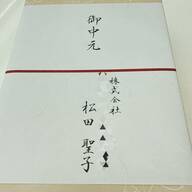 御中元
株式会社▲▲▲▲
松田聖子